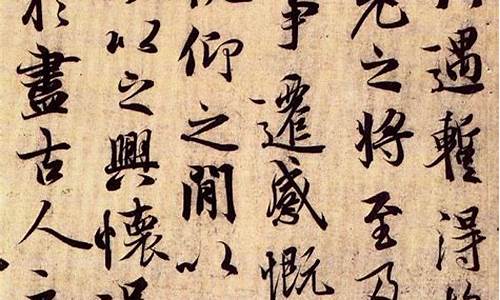 遇暫得於
老之將至及
事遷感慨
仰之閒以
以之興懷
於盡古人云